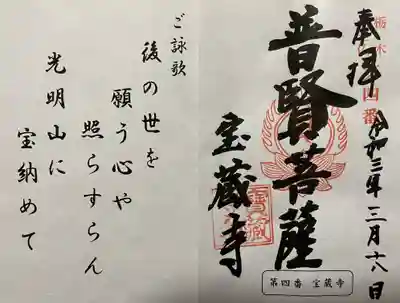 栃木
四番
奉拝 令和三年三月
普賢菩薩
宝蔵寺
第四番 宝蔵寺
ご詠歌
後の世を
願う心や
照らすらん
光明山に
宝納めて